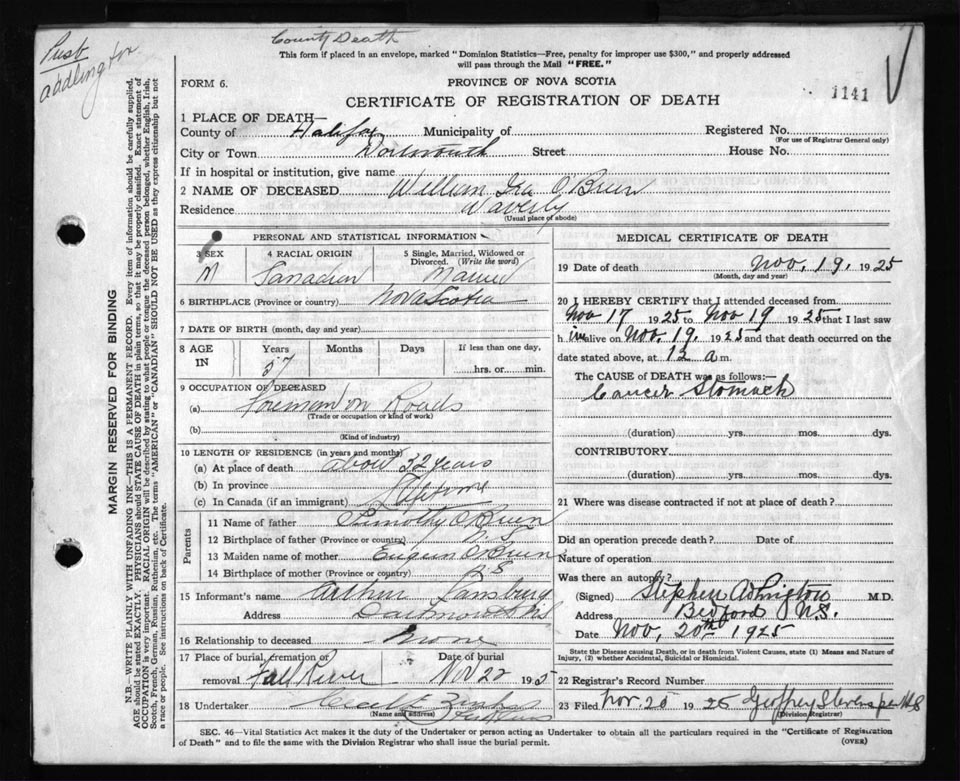 County Death
This form if placed in an envelope, marked "Dominion Statistics—Free, penalty for improper use $300," and properly addressed
will pass through the Mail "FREE."
FORM 6.
PROVINCE OF NOVA SCOTIA
1141
CERTIFICATE OF REGISTRATION OF DEATH
1 PLACE OF DEATH—
County of Halifax Municipality of Registered No.
(For use of Registrar General only)
City or Town Dartmouth Street House No.
If in hospital or institution, give name
2 NAME OF DECEASED William Ira O'Brien
Residence Waverly
(Usual place of abode)
PERSONAL AND STATISTICAL INFORMATION
3 SEX M
4 RACIAL ORIGIN Canadian
5 Single, Married, Widowed or Divorced. (Write the word) Married
6 BIRTHPLACE (Province or country) Nova Scotia
7 DATE OF BIRTH (month, day and year)
8 AGE IN Years 57 Months Days If less than one day, hrs. or min.
9 OCCUPATION OF DECEASED
(a) Foreman on Roads
(Trade or occupation or kind of work)
(b)
(Kind of industry)
10 LENGTH OF RESIDENCE (in years and months)
(a) At place of death about 32 years
(b) In province
(c) In Canada (if an immigrant) Lifetime
Parents
11 Name of father Timothy O'Brien
12 Birthplace of father (Province or country) N.S.
13 Maiden name of mother O'Brien
14 Birthplace of mother (Province or country) N.S
15 Informant's name Arthur
Address Dartmouth N.S
16 Relationship to deceased None
17 Place of burial, cremation or removal Fall River
Date of burial Nov 22 1925
18 Undertaker
(Name and address)
MEDICAL CERTIFICATE OF DEATH
19 Date of death Nov. 19. 1925
(Month, day and year)
20 I HEREBY CERTIFY that I attended deceased from
Nov 17 1925 to Nov 19 1925 that I last saw
him alive on Nov. 19. 1925 and that death occurred on the
date stated above, at 12 a m.
The CAUSE of DEATH was as follows:—
Cancer Stomach
(duration) yrs. mos. dys.
CONTRIBUTORY
(duration) yrs. mos. dys.
21 Where was disease contracted if not at place of death?
Did an operation precede death? Date of
Nature of operation
Was there an autopsy?
(Signed) Stephen Addington M.D.
Address Bedford N.S.
Date Nov. 20th 1925
State the Disease causing Death, or in death from Violent Causes, state (1) Means and Nature of
Injury, (2) whether Accidental, Suicidal or Homicidal.
22 Registrar's Record Number
23 Filed Nov. 20 1925 Geoffrey Stevens
(Division Registrar)
SEC. 46—Vital Statistics Act makes it the duty of the Undertaker or person acting as Undertaker to obtain all the particulars required in the "Certificate of Registration
of Death" and to file the same with the Division Registrar who shall issue the burial permit.
(OVER)
MARGIN RESERVED FOR BINDING
N.B.—WRITE PLAINLY WITH UNFADING INK—THIS IS A PERMANENT RECORD. Every item of information should be carefully supplied.
AGE should be stated EXACTLY. PHYSICIANS should STATE CAUSE OF DEATH in plain terms, so that it may be properly classified. Exact statement of
OCCUPATION is very important. RACIAL ORIGIN will be described by stating to what people or tongue the deceased person belonged, whether English, Irish,
Scotch, French, German, Russian, Ruthenian, etc. The terms "AMERICAN" or "CANADIAN" SHOULD NOT BE USED as they express citizenship but not
a race or people. See instructions on back of Certificate.